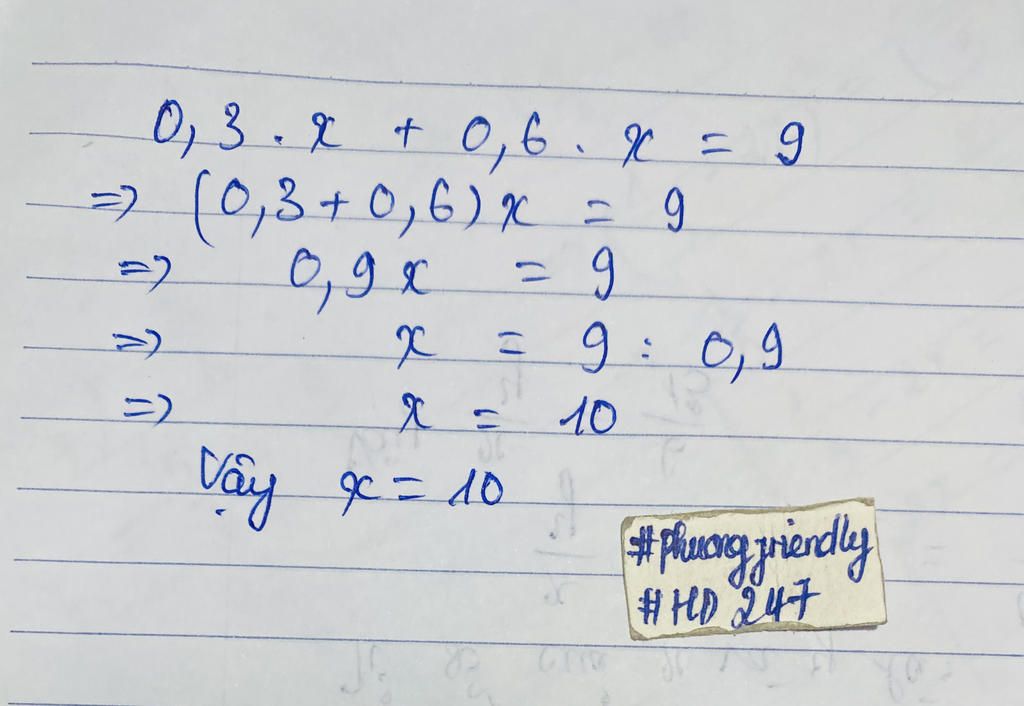 0,3 . x + 0,6 . x = 9
=> (0,3 + 0,6) x = 9
=> 0,9 x = 9
=> x = 9 : 0,9
=> x = 10
Vậy x = 10
#phuong friendly
#HD 247